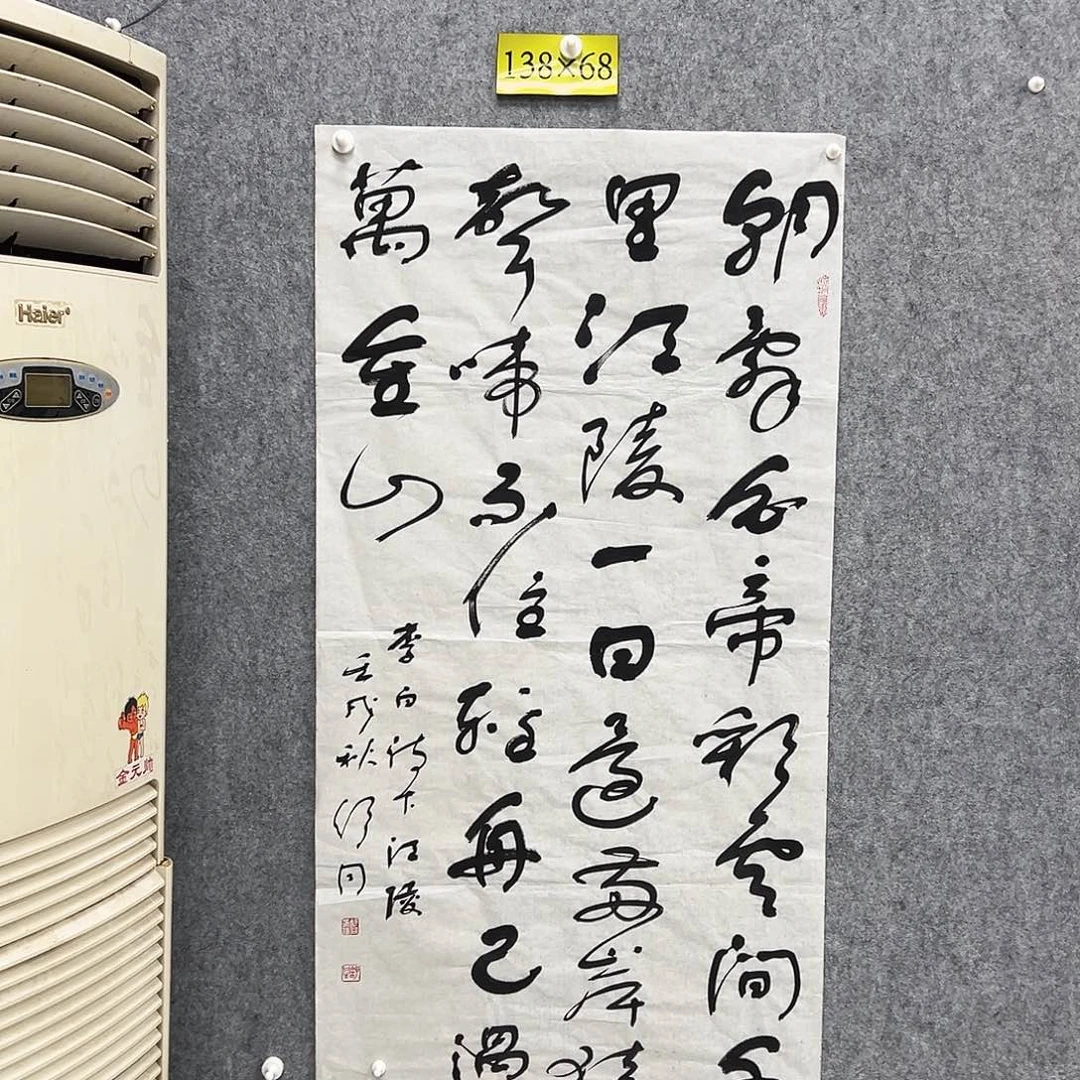 138×68
朝辞白帝彩雲間千
里江陵一日還兩岸猿
聲啼不住輕舟已過
萬重山
李白詩下江陵
壬戌秋舒同
Haier
金元帅